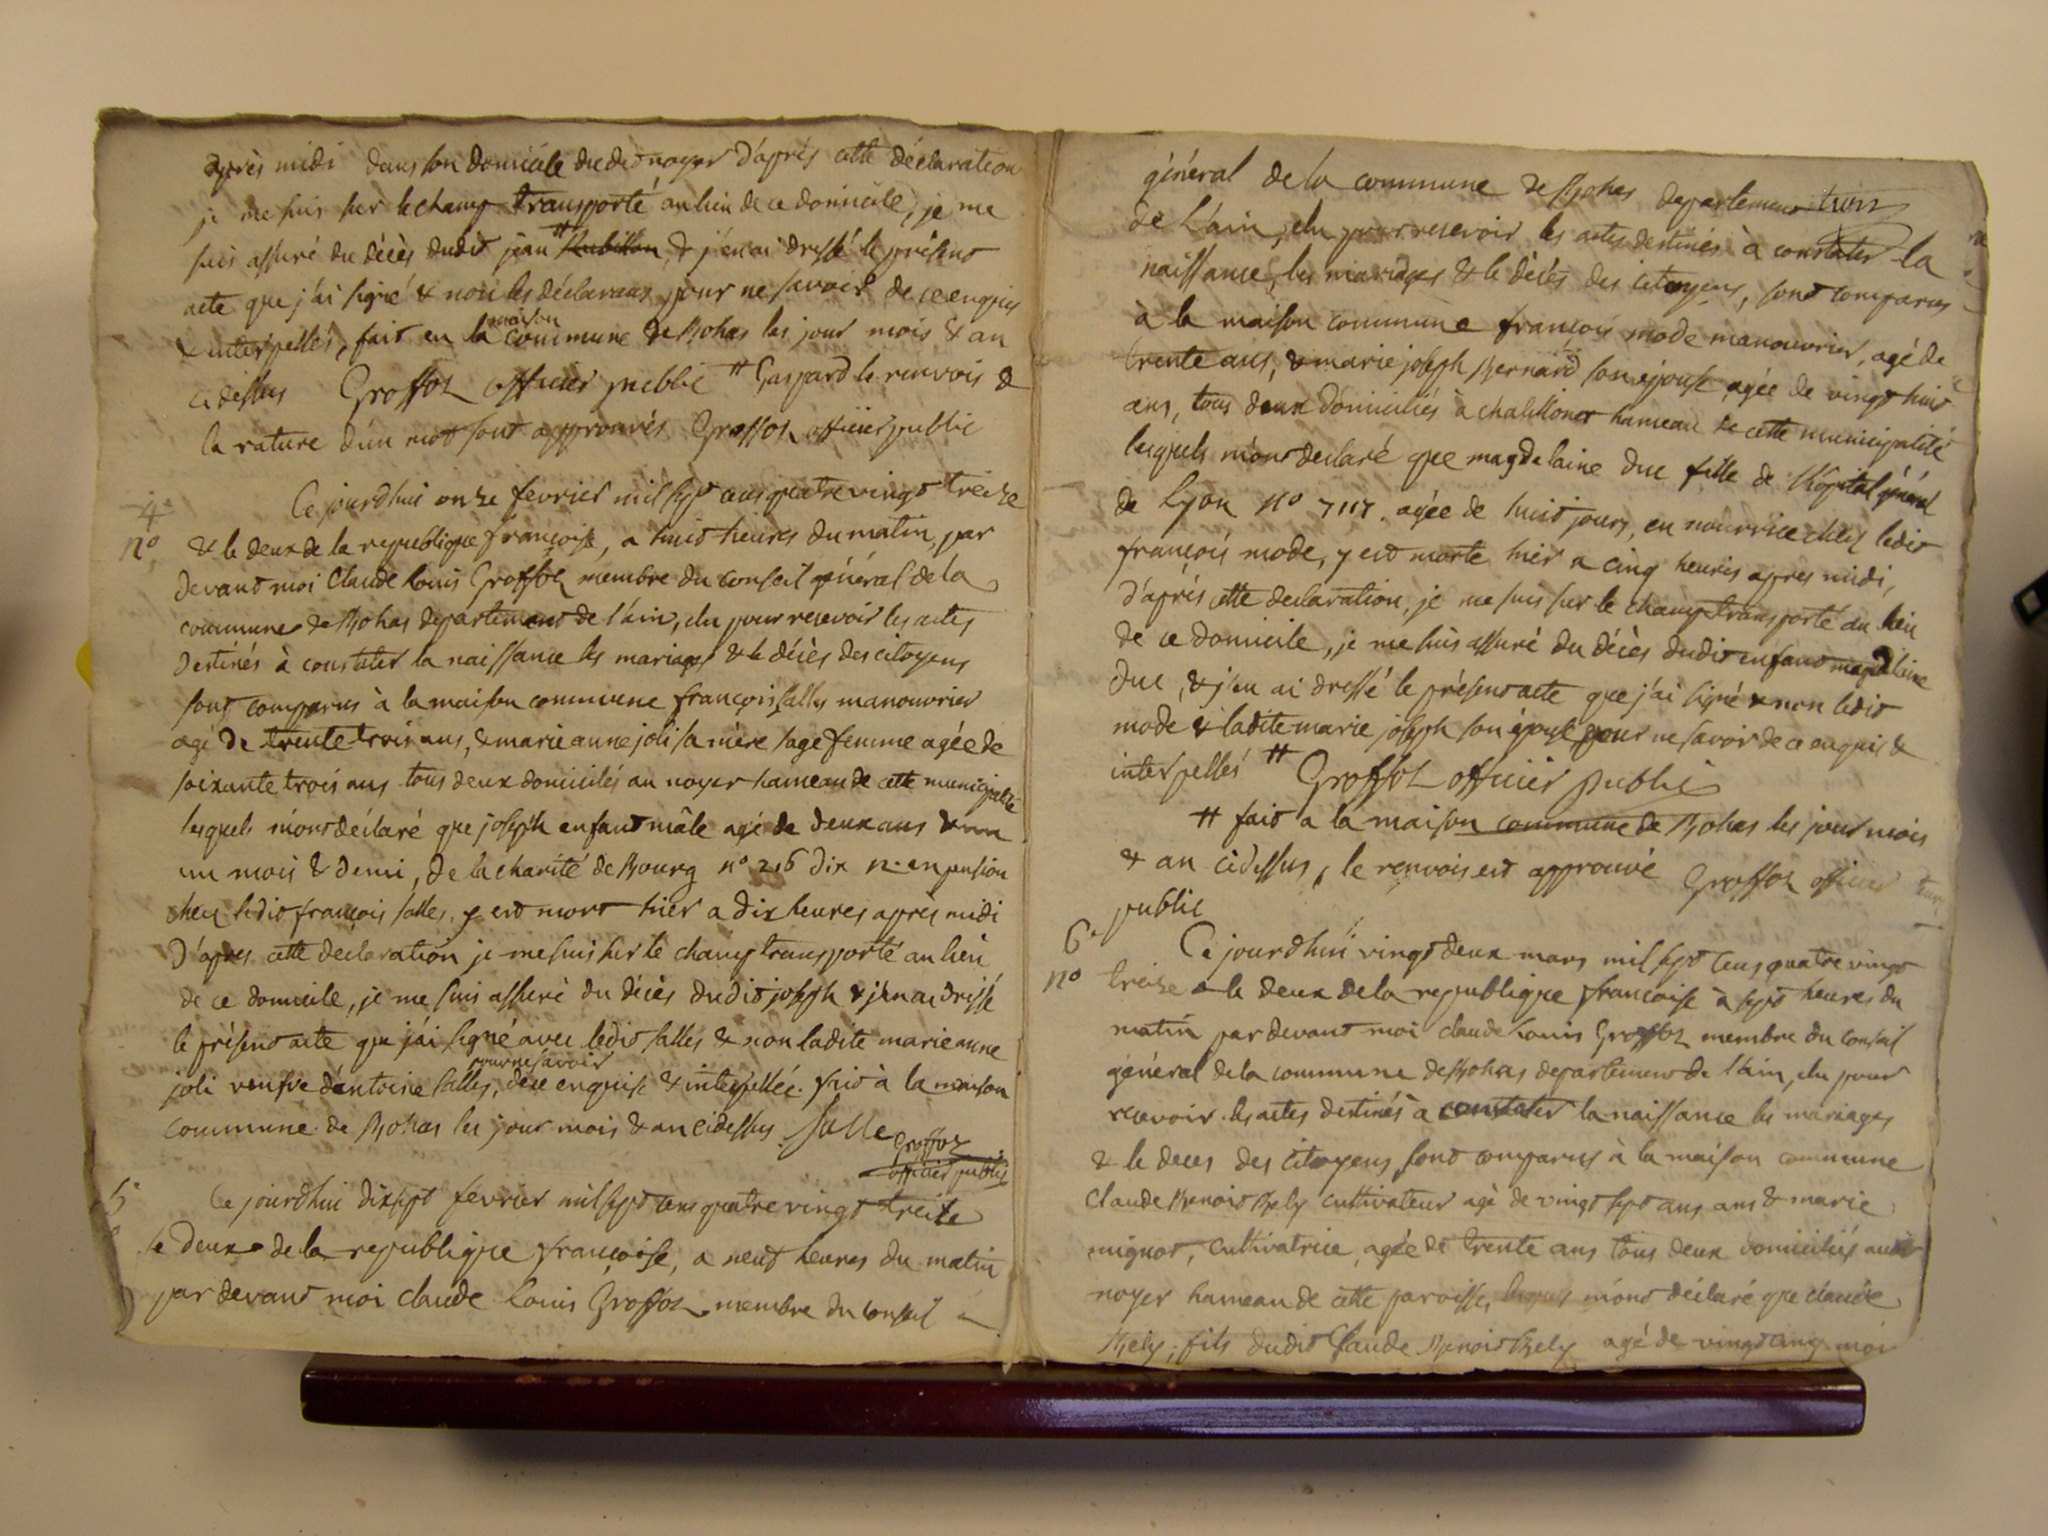 après midi dans son domicile dudit noyer d'après cette déclaration
je me suis sur le champ transporté au lieu de ce domicile, je me
suis assuré du décès dudit jean # Rubillon, & j'en ai dressé le présent
acte que j'ai signé & non les déclarans pour ne savoir de ce enquis
& interpellés, fait en la maison commune de Bohas les jour mois & an
ci dessus Groffoz officier public # Gaspard le renvois &
la rature d'un mot sont approuvés Groffoz officier public
4e
n° Ce jourdhui onze fevrier mil sept cens quatre vingt treize
& le deux de la republique françoise, a huit heures du matin, par
devant moi Claude Louis Groffoz membre du conseil général de la
commune de Bohas departement de l'ain, elu pour recevoir les actes
destinés à constater la naissance les mariages & le décès des citoyens
sont comparus à la maison commune françois salles manouvrier
agé de trente trois ans, & marie anne joli sa mère sage femme agée de
soixante trois ans tous deux domiciliés au noyer hameau de cette municipalité
lesquels m'ont déclaré que joseph enfant mâle agé de deux ans &
un mois & demi, de la charité de Bourg n° 216 dix n. en pension
chez ledit françois salles, y est mort hier a dix heures après midi
D'apres cette déclaration je me suis sur le champ transporté au lieu
de ce domicile, je me suis assuré du décès dudit joseph & j'en ai dressé
le présent acte que j'ai signé avec ledit salles & non ladite marie anne
joli veufve d'antoine salles, pour ne savoir de ce enquise & interpellée. fait à la maison
commune de Bohas les jour mois & an cidessus Salle
Groffoz
officier public
5e Ce jourdhui dix sept fevrier mil sept cens quatre vingt treize
le deux de la republique françoise, a neuf heures du matin
par devant moi claude Louis Groffoz membre du conseil
général de la commune de Bohas departement
de L'ain, elu pour recevoir les actes destinés à constater la
naissance, les mariages & le décès des citoyens, sont comparus
à la maison commune françois mode manouvrier, agé de
trente ans, & marie joseph Bernard son épouse agée de vingt huit
ans, tous deux domiciliés à hameau de cette municipalité
lesquels m'ont declaré que magdelaine duc fille de l'hopital général
de Lyon n° 7117. agée de huit jours, en nourrice chez ledit
françois mode, y est morte hier a cinq heures apres midi,
d'après cette declaration, je me suis sur le champ transporté au lieu
de ce domicile, je me suis assuré du décès dudit enfant magdelaine
Duc, & j'en ai dressé le présent acte que j'ai signé & non ledit
mode & ladite marie joseph son épouse pour ne savoir de ce enquis &
interpellés # Groffoz officier public
# fait a la maison commune de Bohas les jour mois
& an cidessus, le renvois est approuvé Groffoz officier
public
6e
n° Ce jourdhui vingt deux mars mil sept cens quatre vingt
treize & le deux de la republique françoise à sept heures du
matin par devant moi claude Louis Groffoz membre du conseil
général de la commune de Bohas departement de l'ain, elu pour
recevoir les actes destinés à constater la naissance les mariages
& le deces des citoyens sont comparus à la maison commune
Claude Benoit Bely cultivateur agé de vingt sept ans ans & marie
mignot, cultivatrice, agée de trente ans tous deux domiciliés audit
noyer hameau de cette paroisse, lesquels m'ont déclaré que claude
Bely, fils dudit Claude Benoit Bely agé de vingt cinq moi